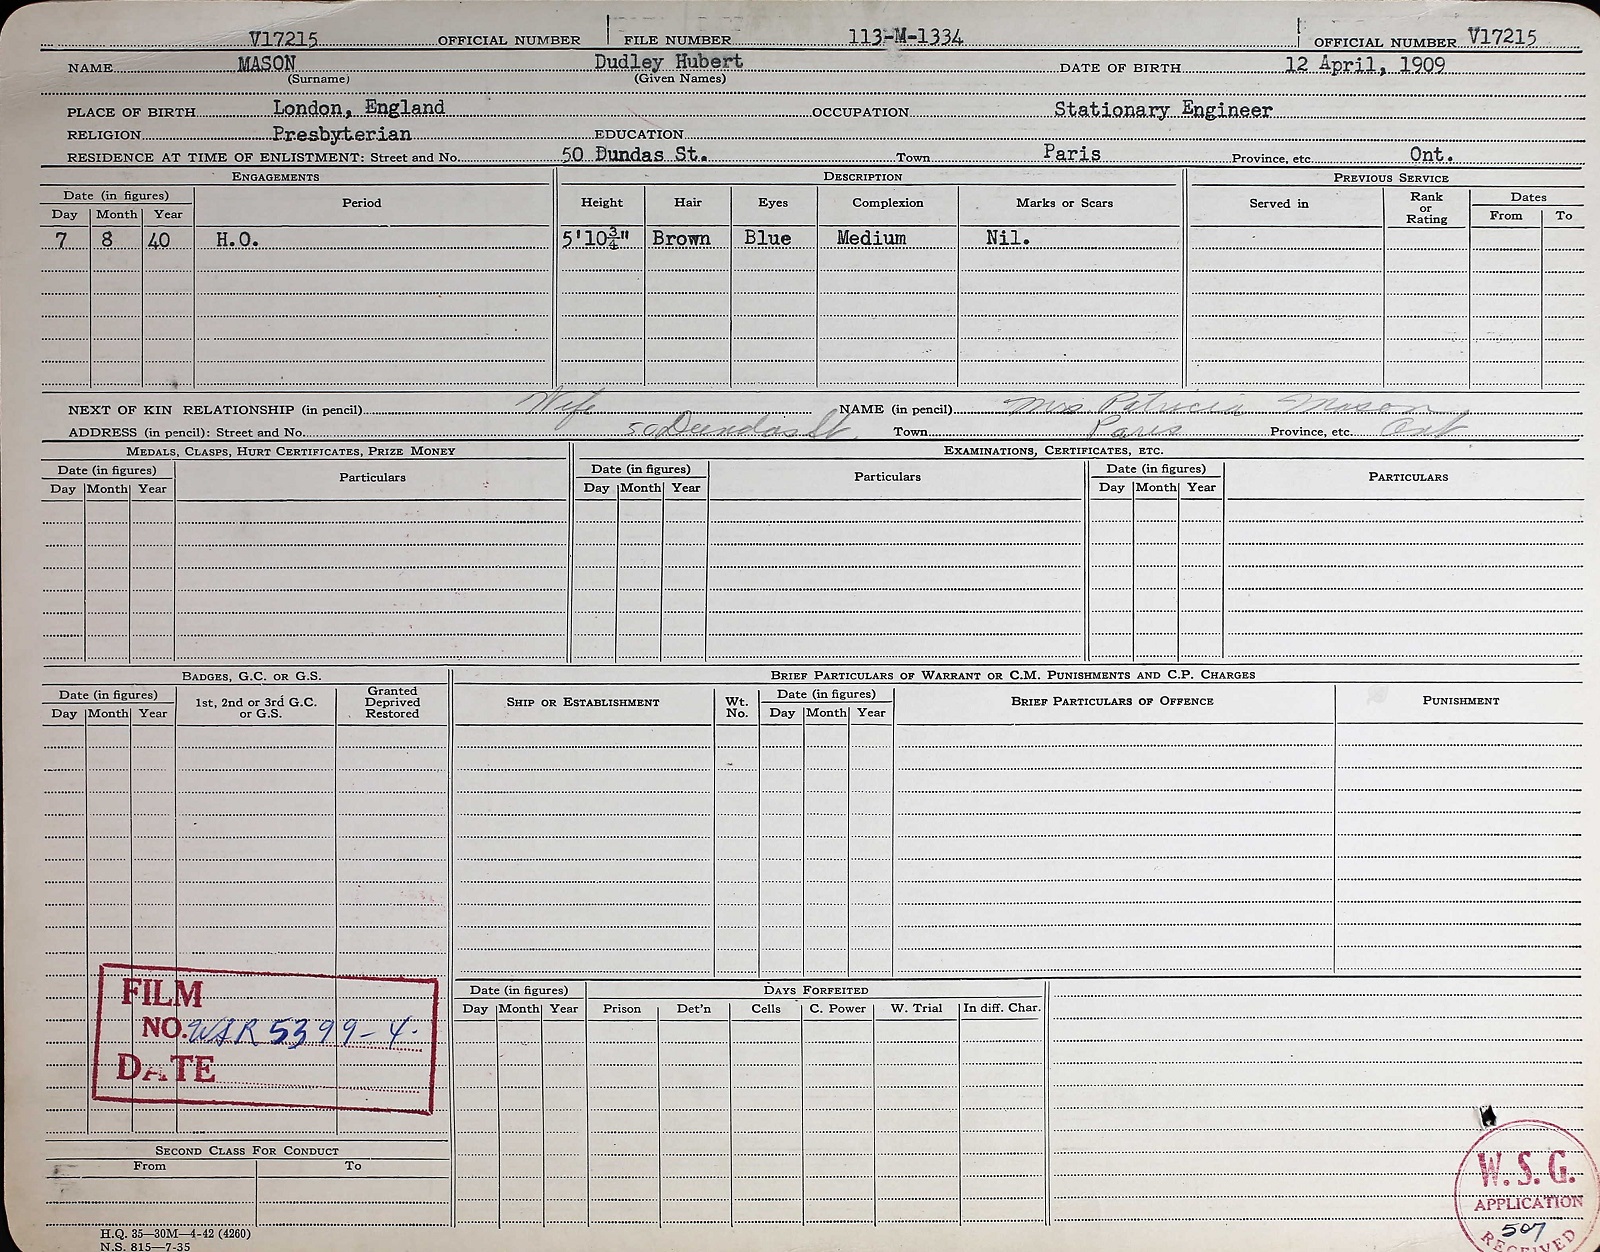 V17215 OFFICIAL NUMBER FILE NUMBER 113-M-1334 OFFICIAL NUMBER V17215
NAME MASON Dudley Hubert DATE OF BIRTH 12 April, 1909
(Surname) (Given Names)
PLACE OF BIRTH London, England OCCUPATION Stationary Engineer
RELIGION Presbyterian EDUCATION
RESIDENCE AT TIME OF ENLISTMENT: Street and No. 50 Dundas St. Town Paris Province, etc. Ont.
ENGAGEMENTS DESCRIPTION PREVIOUS SERVICE
Date (in figures) Period Height Hair Eyes Complexion Marks or Scars Served in Rank or Rating Dates
Day Month Year From To
7 8 40 H.O. 5'10¾" Brown Blue Medium Nil.
NEXT OF KIN RELATIONSHIP (in pencil) Wife NAME (in pencil) Mrs. Patricia Mason
ADDRESS (in pencil): Street and No. 50 Dundas St. Town Paris Province, etc. Ont.
MEDALS, CLASPS, HURT CERTIFICATES, PRIZE MONEY EXAMINATIONS, CERTIFICATES, ETC.
Date (in figures) Particulars Date (in figures) Particulars Date (in figures) PARTICULARS
Day Month Year Day Month Year Day Month Year
BADGES, G.C. OR G.S. BRIEF PARTICULARS OF WARRANT OR C.M. PUNISHMENTS AND C.P. CHARGES
Date (in figures) 1st, 2nd or 3rd G.C. or G.S. Granted Deprived Restored SHIP OR ESTABLISHMENT Wt. No. Date (in figures) BRIEF PARTICULARS OF OFFENCE PUNISHMENT
Day Month Year Day Month Year
FILM
NO. WSR 5399-4.
DATE
Date (in figures) DAYS FORFEITED
Day Month Year Prison Det'n Cells C. Power W. Trial In diff. Char.
SECOND CLASS FOR CONDUCT
From To
W. S. G.
APPLICATION
507
RECEIVED
H.Q. 35—30M—4-42 (4260)
N.S. 815—7-35